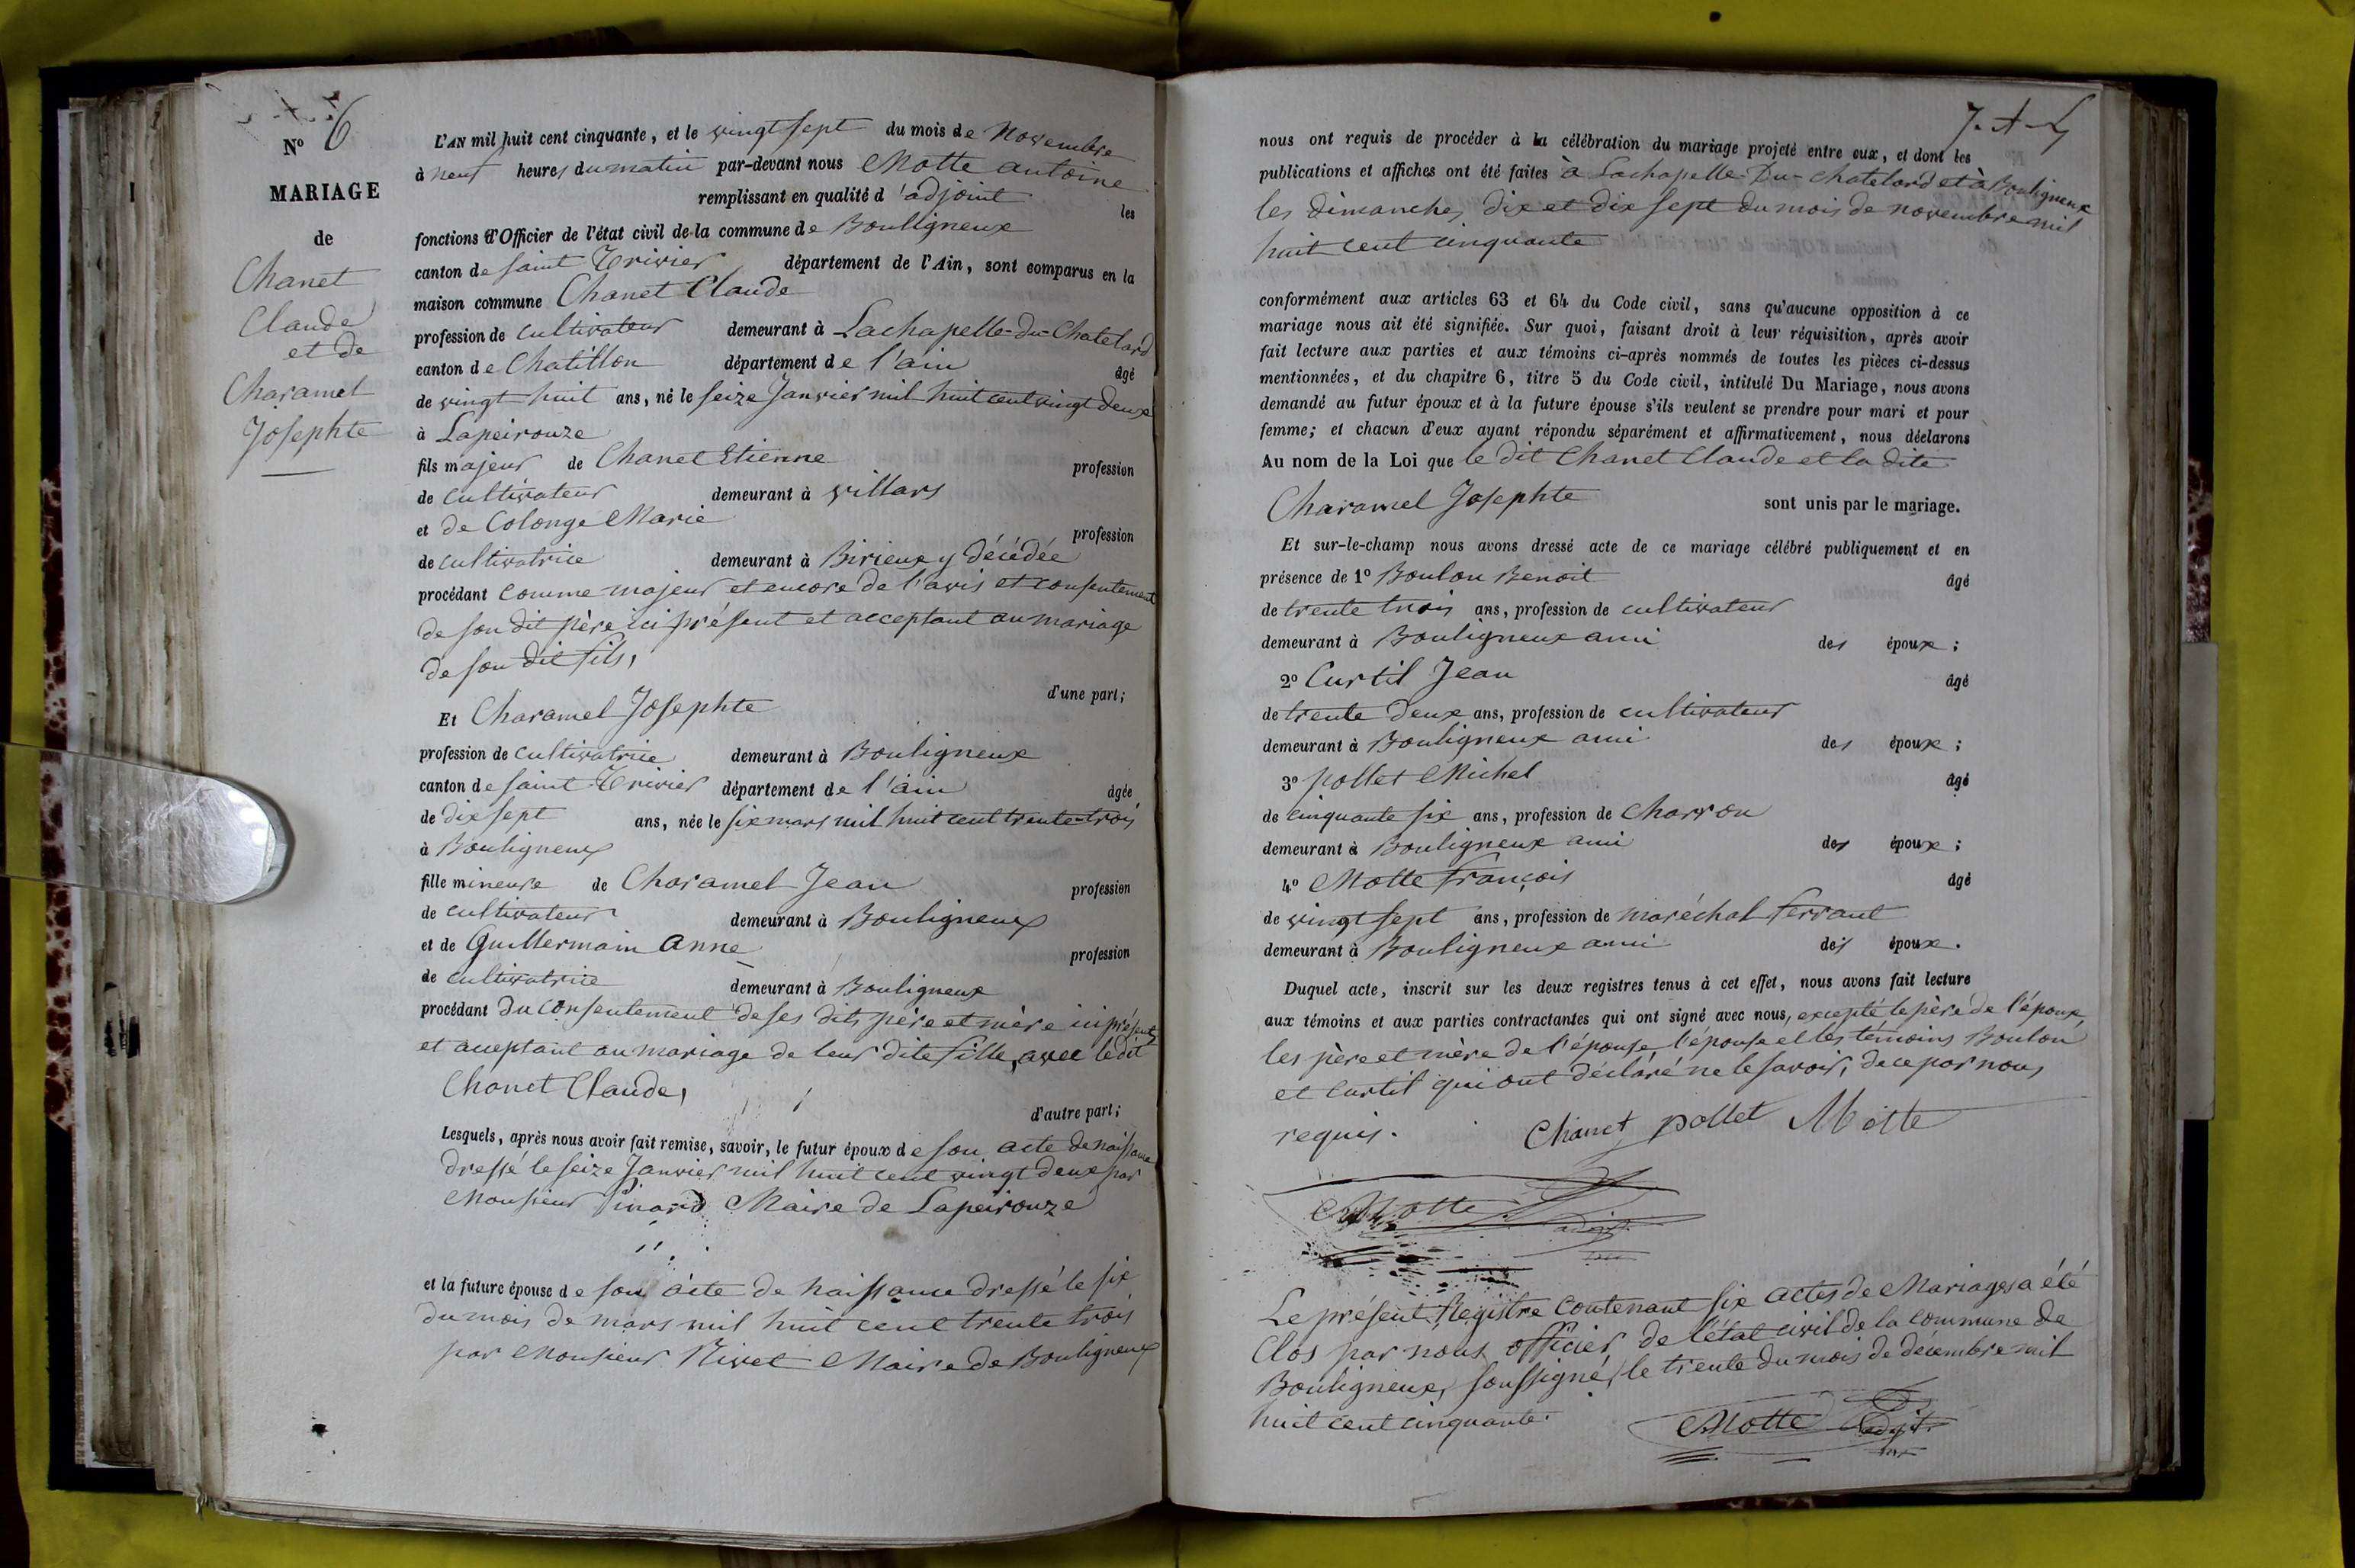 N° 6
MARIAGE
de
Chanet
Claude
et de
Charamel
Josephte
L'AN mil huit cent cinquante, et le vingt sept du mois de Novembre
à neuf heures du matin par-devant nous Motte antoine
remplissant en qualité d'adjoint les
fonctions d'Officier de l'état civil de la commune de Bouligneux
canton de saint Trivier département de l'Ain, sont comparus en la
maison commune Chanet Claude
profession de cultivateur demeurant à Lachapelle-du-Chatelard
canton de Chatillon département de l'ain âgé
de vingt huit ans, né le seize Janvier mil huit cent vingt deux
à Lapeirouze
fils majeur de Chanet Etienne profession
de cultivateur demeurant à villars
et de Colonge Marie profession
de cultivatrice demeurant à Birieux y décédée
procédant comme majeur et encore de l'avis et consentement
de son dit père ici présent et acceptant au mariage
de son dit fils,
d'une part;
Et Charamel Josephte
profession de cultivatrice demeurant à Bouligneux
canton de saint Trivier département de l'ain âgée
de dix sept ans, née le six mars mil huit cent trente-trois
à Bouligneux
fille mineure de Charamel Jean profession
de cultivateur demeurant à Bouligneux
et de Guillermain anne profession
de cultivatrice demeurant à Bouligneux
procédant du consentement de ses dits père et mère ici présents
et aceptant au mariage de leur dite fille, avec le dit
Chanet Claude,
d'autre part;
Lesquels, après nous avoir fait remise, savoir, le futur époux de son acte de naissance
dressé le seize Janvier mil huit cent vingt deux par
Monsieur Pinard Maire de Lapeirouze
et la future épouse de son acte de naissance dressé le six
du mois de mars mil huit cent trente trois
par Monsieur Nivet Maire de Bouligneux
nous ont requis de procéder à la célébration du mariage projeté entre eux, et dont les
publications et affiches ont été faites à Lachapelle-Du-Chatelard et à Bouligneux
les dimanches dix et dix sept du mois de novembre mil
huit cent cinquante
conformément aux articles 63 et 64 du Code civil, sans qu'aucune opposition à ce
mariage nous ait été signifiée. Sur quoi, faisant droit à leur réquisition, après avoir
fait lecture aux parties et aux témoins ci-après nommés de toutes les pièces ci-dessus
mentionnées, et du chapitre 6, titre 5 du Code civil, intitulé Du Mariage, nous avons
demandé au futur époux et à la future épouse s'ils veulent se prendre pour mari et pour
femme; et chacun d'eux ayant répondu séparément et affirmativement, nous déclarons
Au nom de la Loi que le dit Chanet Claude et la dite
Charamel Josephte sont unis par le mariage.
Et sur-le-champ nous avons dressé acte de ce mariage célébré publiquement et en
présence de 1° Boulon Benoit âgé
de trente trois ans, profession de cultivateur
demeurant à Bouligneux ami des époux;
2° Curtil Jean âgé
de trente deux ans, profession de cultivateur
demeurant à Bouligneux ami des époux;
3° pollet Michel âgé
de cinquante six ans, profession de Charron
demeurant à Bouligneux ami des époux;
4° Motte françois âgé
de vingt sept ans, profession de maréchal ferrant
demeurant à Bouligneux ami des époux.
Duquel acte, inscrit sur les deux registres tenus à cet effet, nous avons fait lecture
aux témoins et aux parties contractantes qui ont signé avec nous, excepté le père de l'époux,
les père et mère de l'épouse, l'épouse et les témoins Boulon
et Curtil qui ont déclaré ne le savoir, de ce par nous
requis. Chanet pollet Motte
Motte
adjt
Le présent Registre contenant six actes de Mariages a été
Clos par nous officier de l'état civil de la commune de
Bouligneux, soussigné, le trente du mois de décembre mil
huit cent cinquante.
Motte adjt